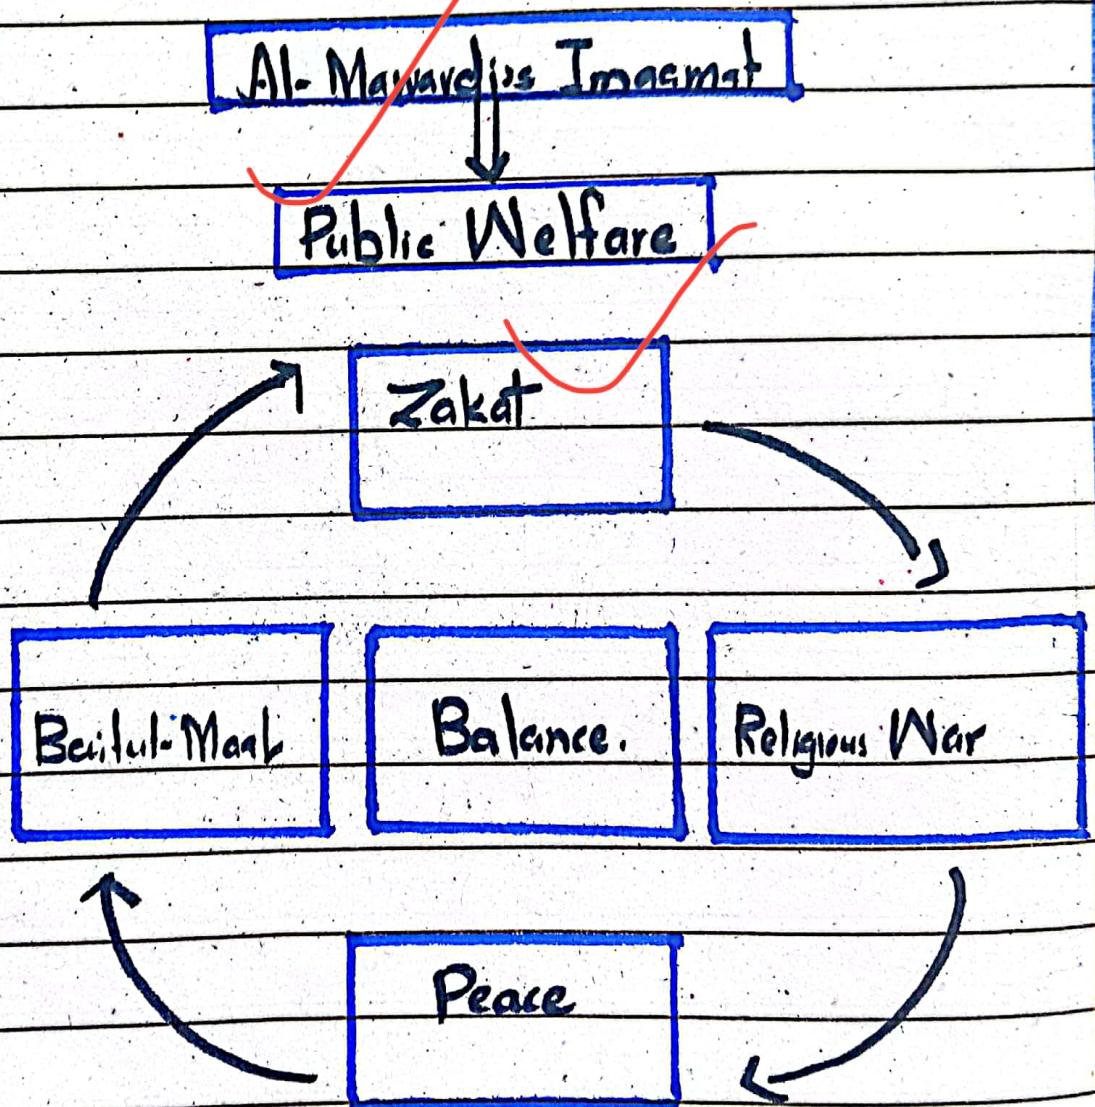 Al-Mawardi's Imaamat
Public Welfare
Zakat
Baitul-Maal
Balance.
Religious War
Peace